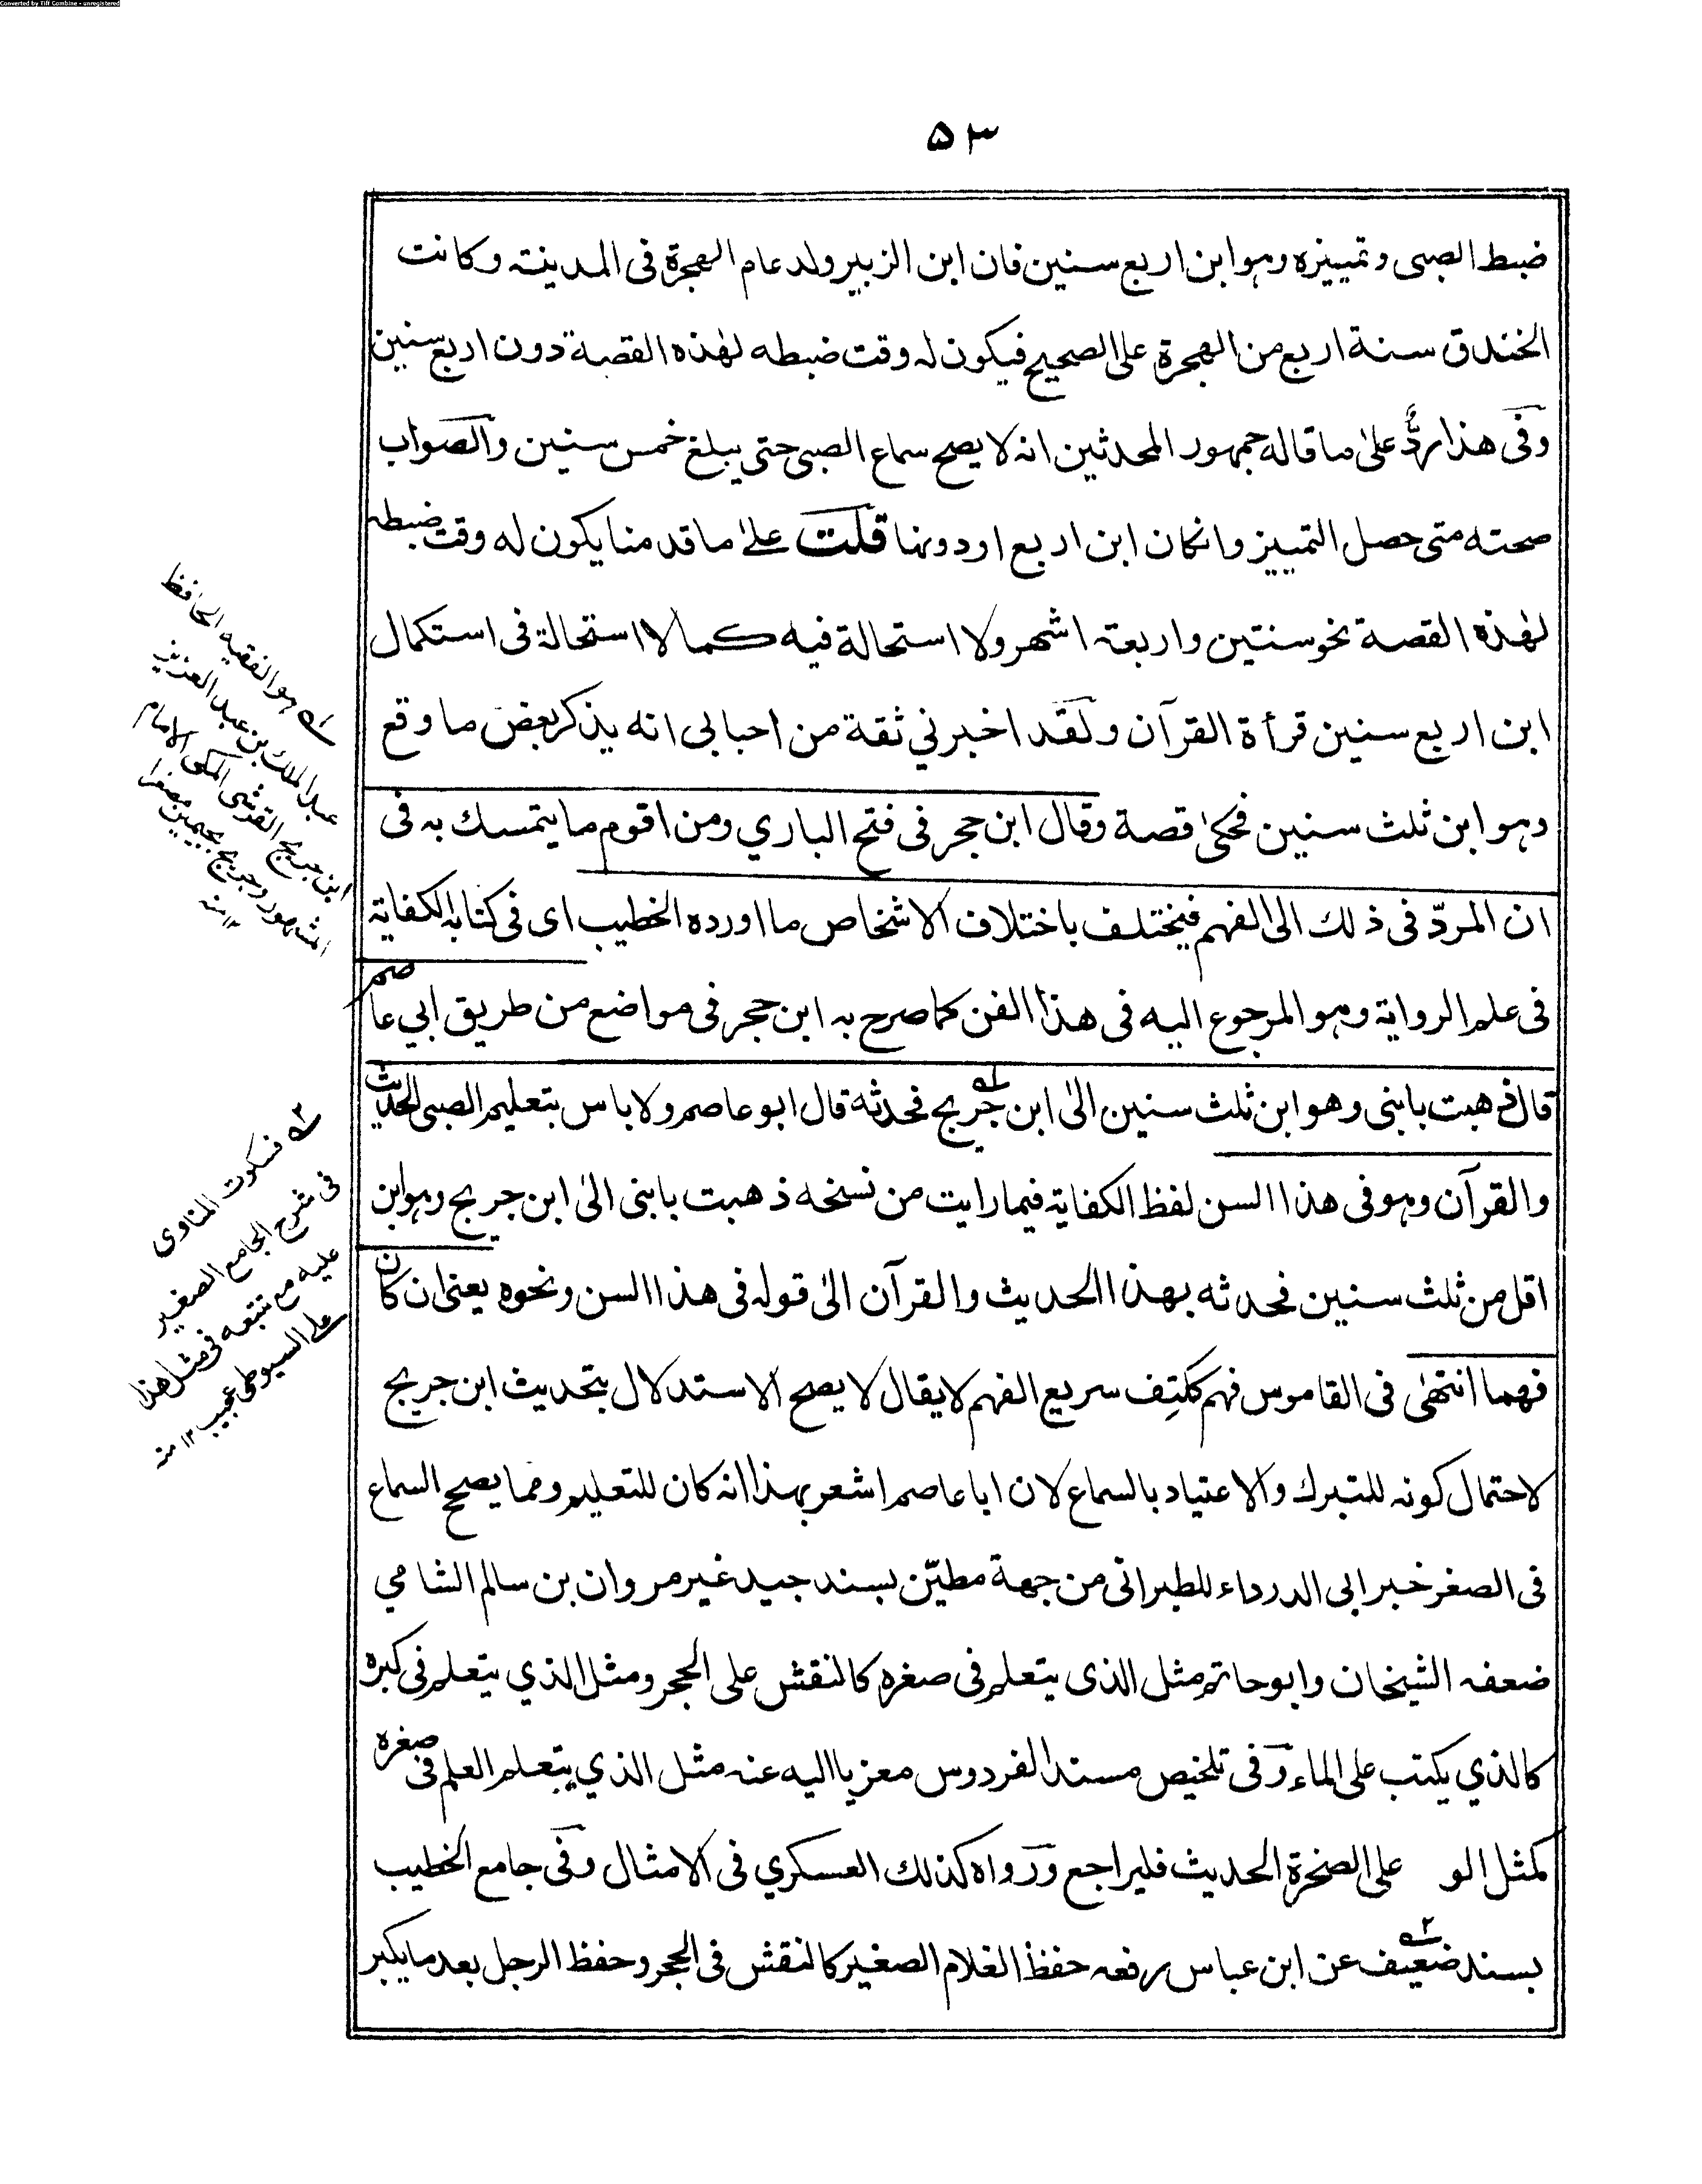 Converted by Tiff Combine - unregistered
۵۳
ضبط الصبی و تمییزه وہو ابن اربع سنین فان ابن الزبیر ولد عام الهجرة فی المدینۃ وکانت
الخندق سنة اربع من الهجرة علی الصحیح فیکون لہ وقت ضبطه لهٰذه القصة دون اربع سنین
وفی هذا ردٌّ علیٰ ما قاله جمهور المحدثین انہ لا یصح سماع الصبی حتی یبلغ خمس سنین والصواب
صحته متی حصل التمییز وانکان ابن اربع او دونہا قلت علیٰ ما قدمنا یکون له وقت ضبطہ
لهٰذه القصة نحو سنتین واربعۃ اشهر ولا استحالة فیه کما لا استحالۃ فی استکمال
ابن اربع سنین قرأة القرآن ولقد اخبرني ثقة من احبابی انه یذکر بعض ما وقع
وہو ابن ثلث سنین فحکیٰ قصة وقال ابن حجر فی فتح الباري ومن اقوم ما یتمسك به فی
ان المردّ فی ذلك الی الفهم فیختلف باختلاف الاشخاص ما اورده الخطیب ای فی کتابہ الکفایة
فی علم الروایة وہو المرجوع الیه فی هذا الفن کما صرح به ابن حجر فی مواضع من طریق ابي عاصم
قال ذهبت بابنی وهو ابن ثلث سنین الیٰ ابن جریج فحدثه قال ابو عاصم ولا باس بتعلیم الصبی الحدیث
والقرآن وہو فی هذا السن لفظ الکفایة فیما رایت من نسخه ذهبت بابنی الیٰ ابن جریج وہو ابن
اقل من ثلث سنین فحدثه بهذا الحدیث والقرآن الیٰ قوله فی هذا السن ونحوه یعنی ان کان
فهما انتهیٰ فی القاموس فهم ککتِف سریع الفهم لا یقال لا یصح الاستدلال بتحدیث ابن جریج
لاحتمال کونہ للتبرك والاعتیاد بالسماع لان ابا عاصم اشعر بهذا انه کان للتعلیم ومما یصحح السماع
فی الصغر خبر ابی الدرداء للطبرانی من جهة مطیّن بسند جید غیر مروان بن سالم الشامي
ضعفه الشیخان وابو حاتم مثل الذی یتعلم فی صغره کالنقش علی الحجر ومثل الذي یتعلم فی کبره
کالذي یکتب علی الماء وفی تلخیص مسند الفردوس معزیا الیه عنہ مثل الذي یتعلم العلم فی صغره
کمثل الو علی الصخرة الحدیث فلیراجع ورواه کذلك العسکري فی الامثال وفی جامع الخطیب
بسند ضعیف عن ابن عباس رفعه حفظ الغلام الصغیر کالنقش فی الحجر وحفظ الرجل بعد ما یکبر
لہ ہو الفقیہ الحافظ
عبد الملك بن عبد العزیز
ابن جریج القرشی المکی الامام
المشہور وجریج بجیمین مصغرا
۱۲ منہ
۲ہ فسکوت المناوی
فی شرح الجامع الصغیر
علیہ مع تتبعه فی مثل هذا
علی السیوطی عجیب ۱۲ منہ